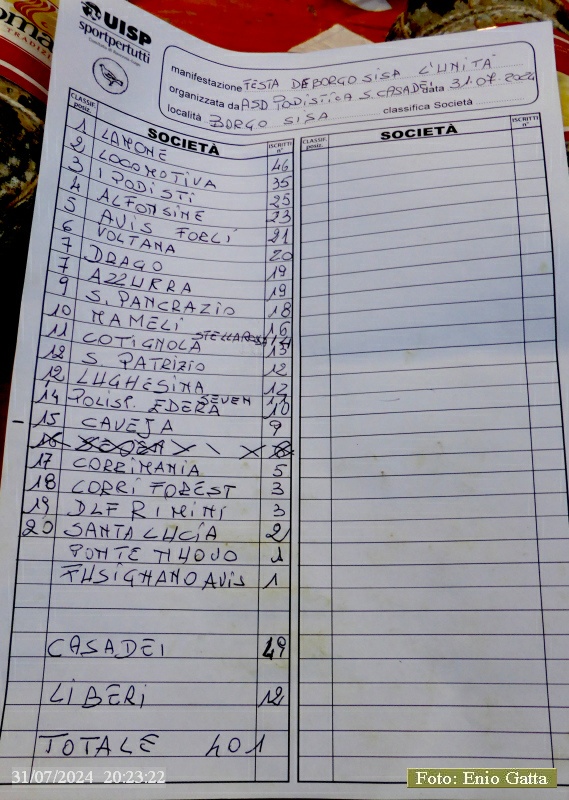 UISP
sportpertutti
manifestazione FESTA DE BORGO SISA L'UNITÀ
organizzata da ASD PODISTICA S. CASADEI data 31.07.2024
località BORGO SISA classifica Società
CLASSIF. posiz. SOCIETÀ ISCRITTI n° CLASSIF. posiz. SOCIETÀ ISCRITTI n°
1 LAMONE 46
2 LOCOMOTIVA 35
3 I PODISTI 25
4 ALFONSINE 23
5 AVIS FORLÍ 21
6 VOLTANA 20
7 DRAGO 19
7 AZZURRA 19
9 S. PANCRAZIO 18
10 MAMELI 16
STELLAROSSA 14
11 COTIGNOLA 13
12 S PATRIZIO 12
12 LUGHESINA 12
SEVEN
14 POLISP. EDERA 10
15 CAVEJA 9
16
17 CORRIMANIA 5
18 CORRI FOREST 3
19 DLF RIMINI 3
20 SANTA LUCÍA 2
PONTE NUOVO 1
FUSIGNANO AVIS 1
CASADEI 49
LIBERI 12
TOTALE 401
31/07/2024 20:23:22
Foto: Enio Gatta